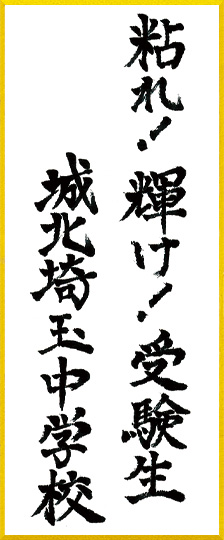 粘れ!輝け!受験生
城北埼玉中学校